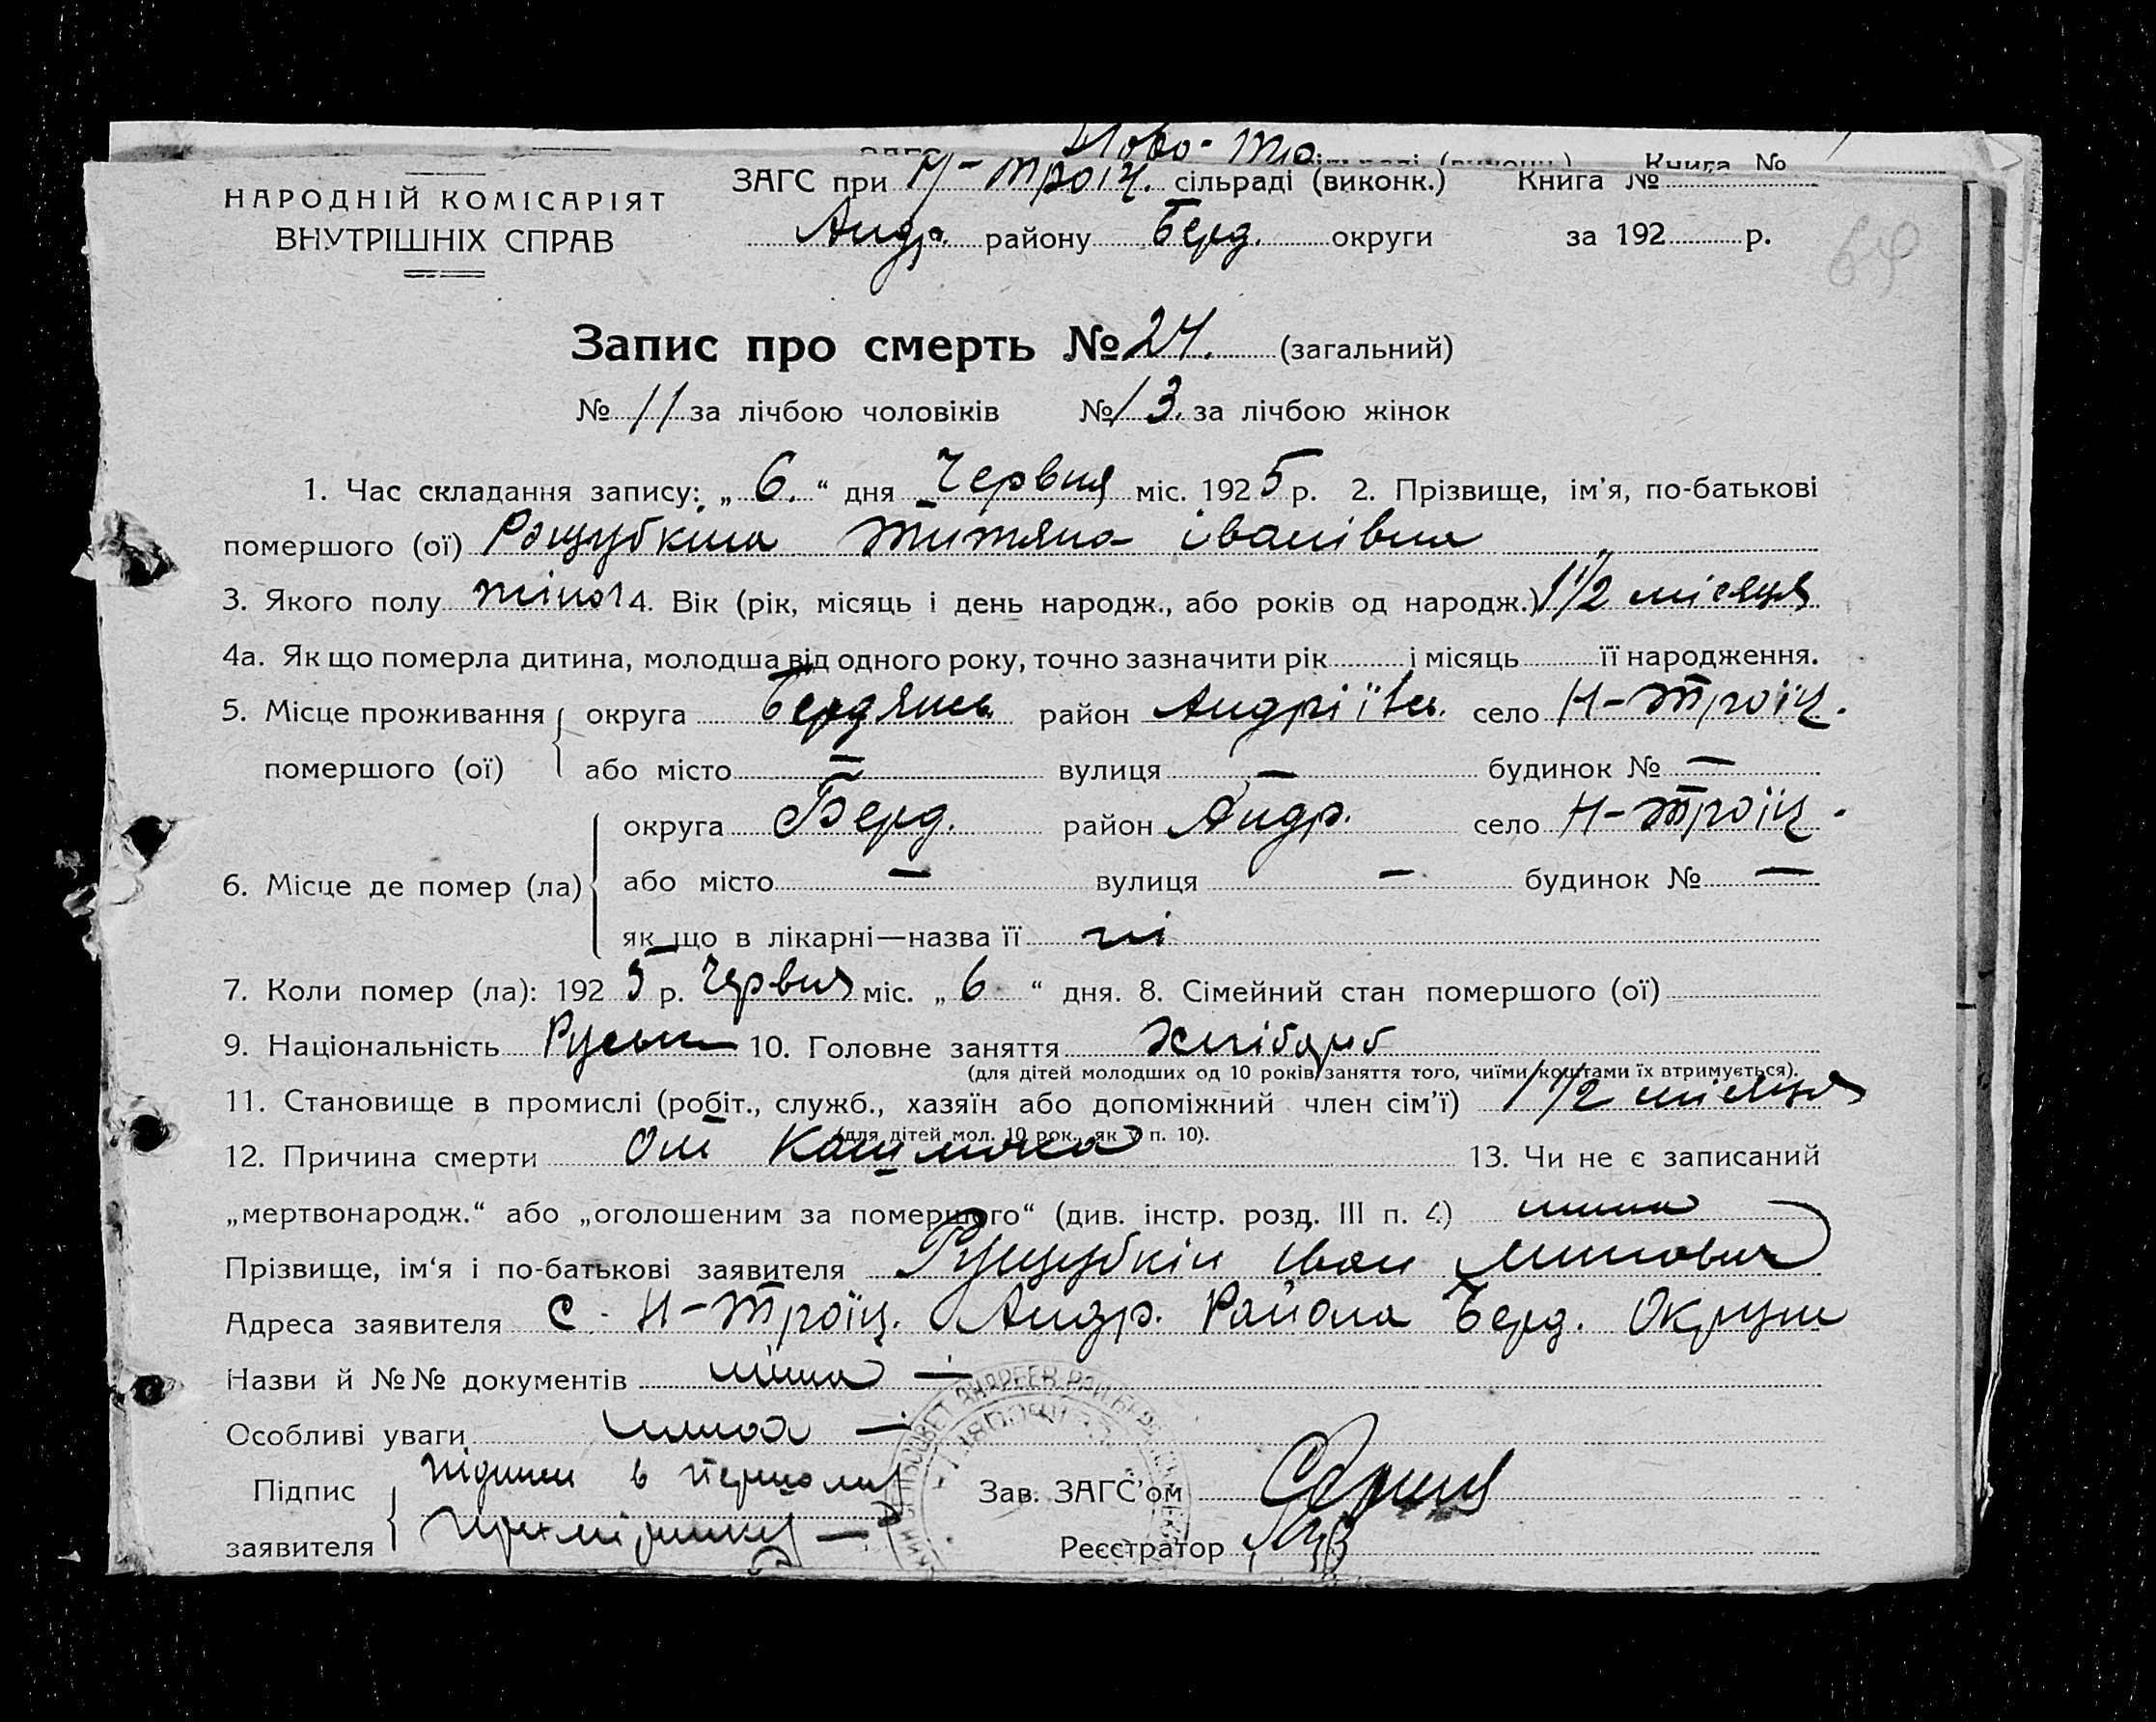 Ново-Тро
Книга №
НАРОДНІЙ КОМІСАРІЯТ
ВНУТРІШНІХ СПРАВ
ЗАГС при Н-Троїц. сільраді (виконк.) Книга №
Андр. району Берд. округи за 192 р.
69
Запис про смерть № 24. (загальний)
№ 11 за лічбою чоловіків № 13. за лічбою жінок
1. Час складання запису: „ 6. “ дня Червня міс. 1925 р. 2. Прізвище, ім’я, по-батькові
помершого (ої) Рощубкіна Титяна іванівна
3. Якого полу жіноч 4. Вік (рік, місяць і день народж., або років од народж.) 1 1/2 місяця
4а. Як що померла дитина, молодша від одного року, точно зазначити рік і місяць її народження.
5. Місце проживання округа Бердянськ район Андріївсь. село Н-Троїц.
помершого (ої) або місто — вулиця — будинок № —
округа Берд. район Андр. село Н-Троїц.
6. Місце де помер (ла) або місто — вулиця — будинок № —
як що в лікарні—назва її ні
7. Коли помер (ла): 1925 р. Червня міс. „ 6 “ дня. 8. Сімейний стан помершого (ої)
9. Національність Руськ 10. Головне заняття Хлібороб
(для дітей молодших од 10 років заняття того, чиїми коштами їх втримується).
11. Становище в промислі (робіт., служб., хазяїн або допоміжний член сім’ї) 1 1/2 місяця
(для дітей мол. 10 рок., як у п. 10).
12. Причина смерти От Кашлюка 13. Чи не є записаний
„мертвонародж.“ або „оголошеним за помершого“ (див. інстр. розд. III п. 4) нима
Прізвище, ім‘я і по-батькові заявителя Рущубкін Іван
Адреса заявителя с. Н-Троїц. Андр. Района Берд. Округи
Назви й №№ документів німа —
Особливі уваги нима —
Підпис підпис в першому
заявителя примірнику —
Зав. ЗАГС’ом
Реєстратор